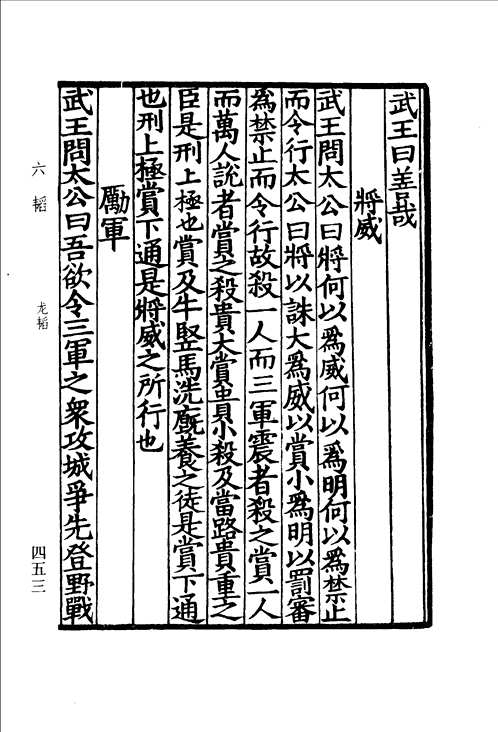 武王曰善哉
將威
武王問太公曰將何以爲威何以爲明何以爲禁止
而令行太公曰將以誅大爲威以賞小爲明以罰審
爲禁止而令行故殺一人而三軍震者殺之賞一人
而萬人說者賞之殺貴大賞貴小殺及當路貴重之
臣是刑上極也賞及牛竪馬洗廐養之徒是賞下通
也刑上極賞下通是將威之所行也
勵軍
武王問太公曰吾欲令三軍之衆攻城爭先登野戰
六韬 龙韬 四五三